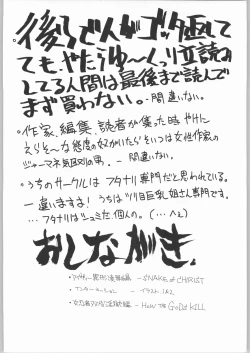 。後ろで人がゴッタ返して
ても、やたらゆ〜くっり立読み
してる人間は最後まで読んで
まず買わない。-間違いない。
・作家、編集、読者が集った時やけに
えらそ〜な態度の奴がいたらそいつは女性作家の
マネ気取りの男。- 間違いない。
・うちのサークルは フタナリ専門だと思われている。
一 違いますよ! うちはツリ目巨乳姐さん専門です。
…フタナリはシュミだ 個人の。(…へぇ)
おしながき.
- SNAKE of CHRIST
・インターミッション - イラスト 1&2
- How the GOdd KILL